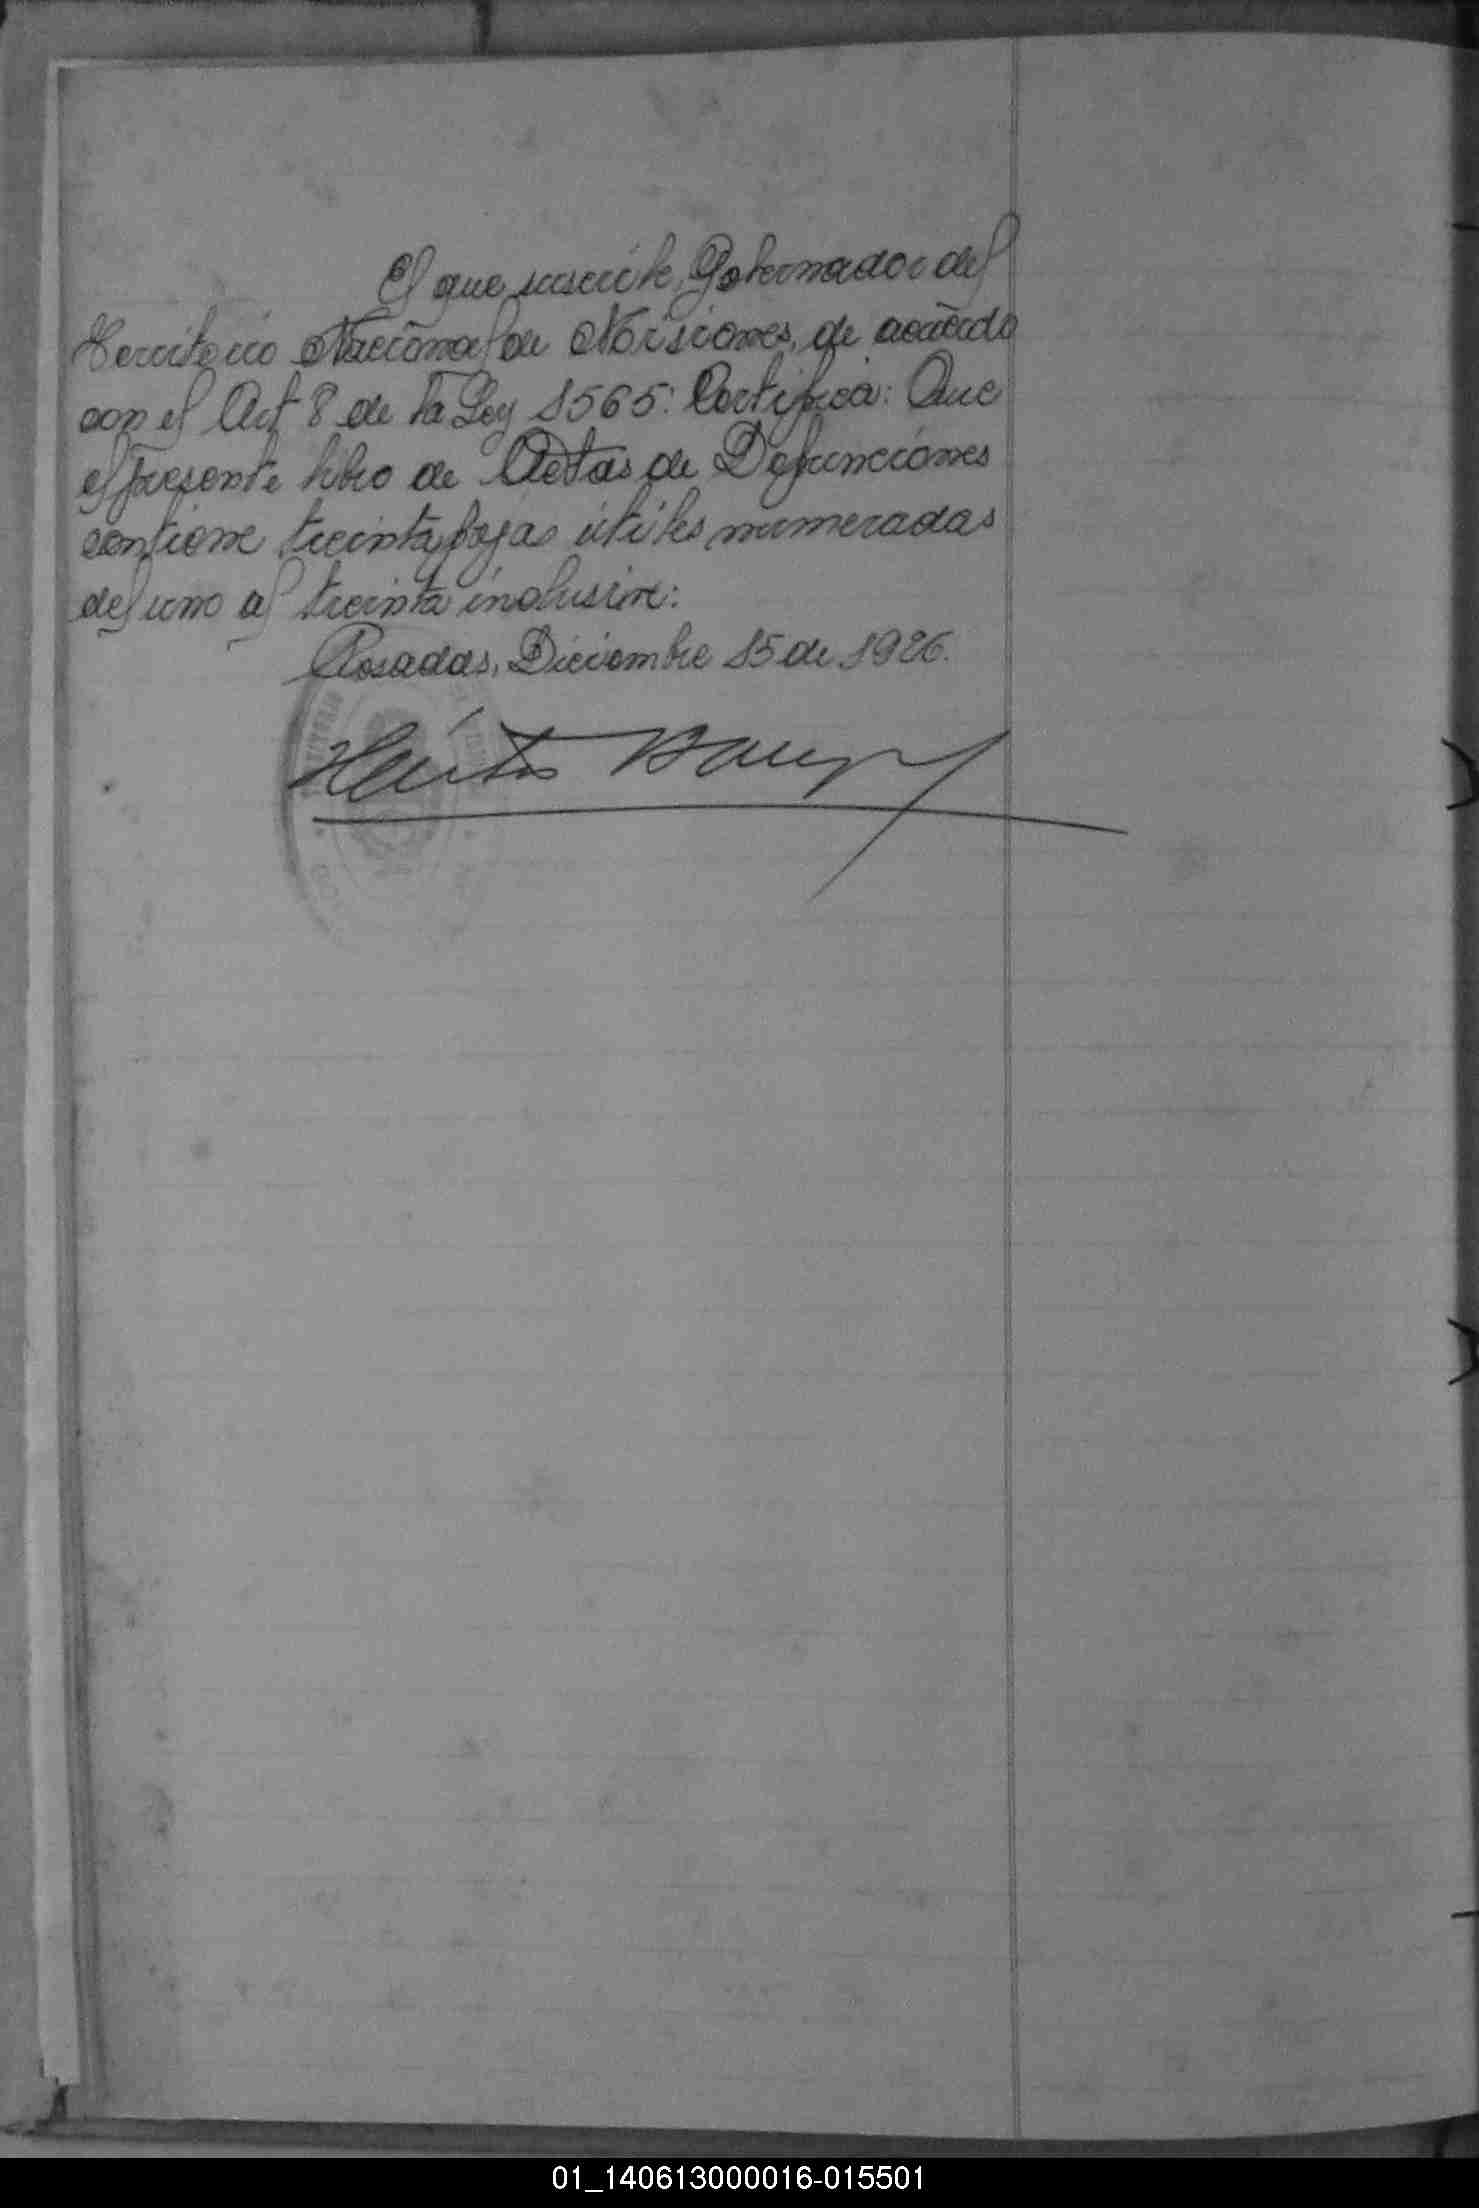 El que suscribe, Gobernador del
Territorio Nacional de Misiones, de acuerdo
con el Art 8 de la Ley 1565: Certifica: Que
el presente libro de Actas de Defunciones
contiene treinta fojas útiles numeradas
del uno al treinta inclusive:
Posadas, Diciembre 15 de 1926.
Héctor
01_140613000016-015501